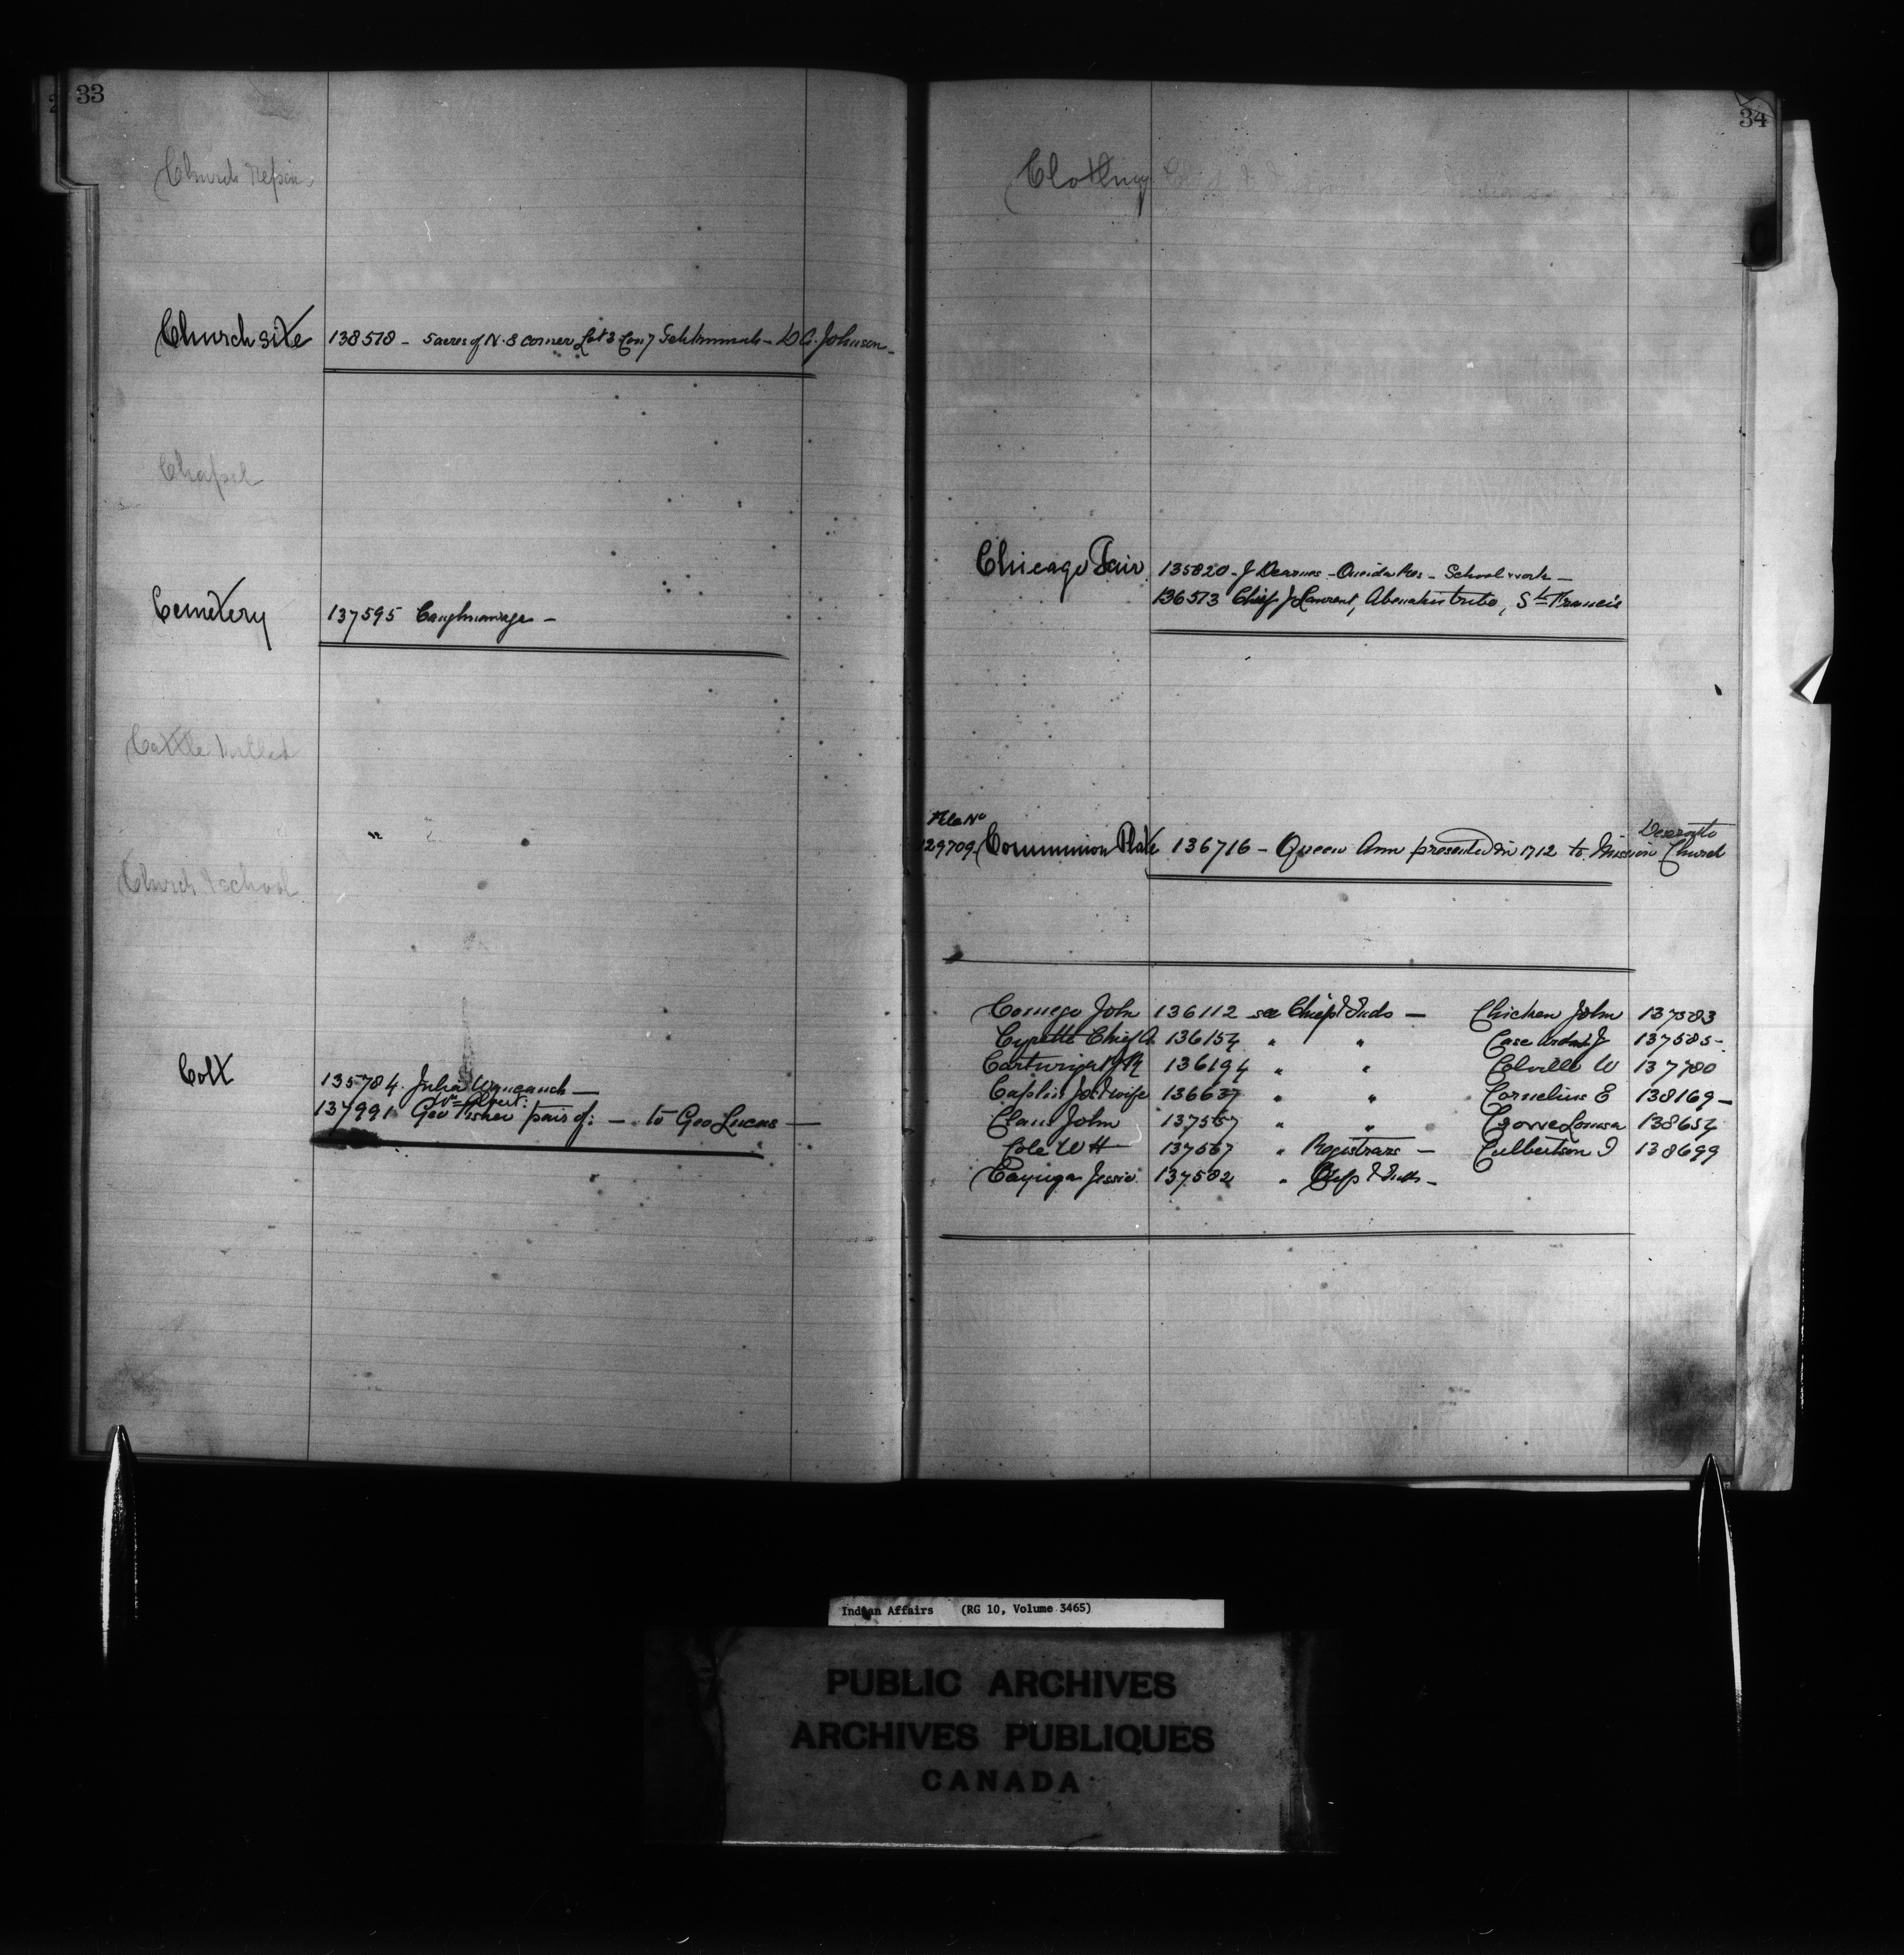 33
Church Repairs
Church site 138578 - 5 acres of N.E corner Lot 3 Con 7 - D A. Johnson -
Chapel
Cemetery 137595 Caughnawaga -
Cattle killed
Church & school
Colt
135784. Julia
Wm Albert:
137991 Geo Fisher pair of: - to Geo Lucas -
34
Clothing
Chicago Fair 135820 - J - Oneida Res - School work -
136573 Chief J Laurent, Abenakis tribe, St Francis
File No
Deseronto
129709 Communion Plate 136716 - Queen Ann presented in 1712 to Mission Church
Cornego John 136112 see Chief & Inds - Chicken John 137583
Cyrette Chief A 136154 " " Case J 137585 -
136194 " " Colville W 137780
Caplin Jos & wife 136637 " " Cornelius E 138169 -
Claus John 137567 " " Crowe Louisa 138654
Cole W H 137567 " Registrars - Culbertson I 138699
Cayuga Jessie 137582 " Chfs & Inds -
Indian Affairs (RG 10, Volume 3465)
PUBLIC ARCHIVES
ARCHIVES PUBLIQUES
CANADA